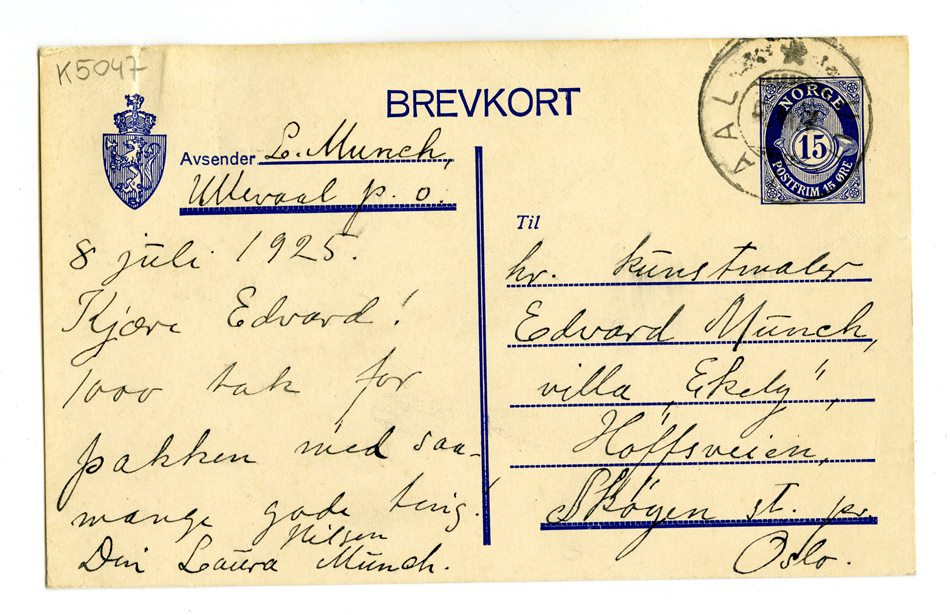 K5047
BREVKORT
Avsender L. Munch,
Ullevaal p. o.
8 juli 1925.
Kjære Edvard!
1000 tak for
pakken med saa-
mange gode ting!
Hilsen
Din Laura Munch.
AAL
NORGE
15
POSTFRIM. 15 ØRE
Til
hr. kunstmaler
Edvard Munch,
villa „Ekely",
Hoffsveien,
Skøyen st. pr.
Oslo.